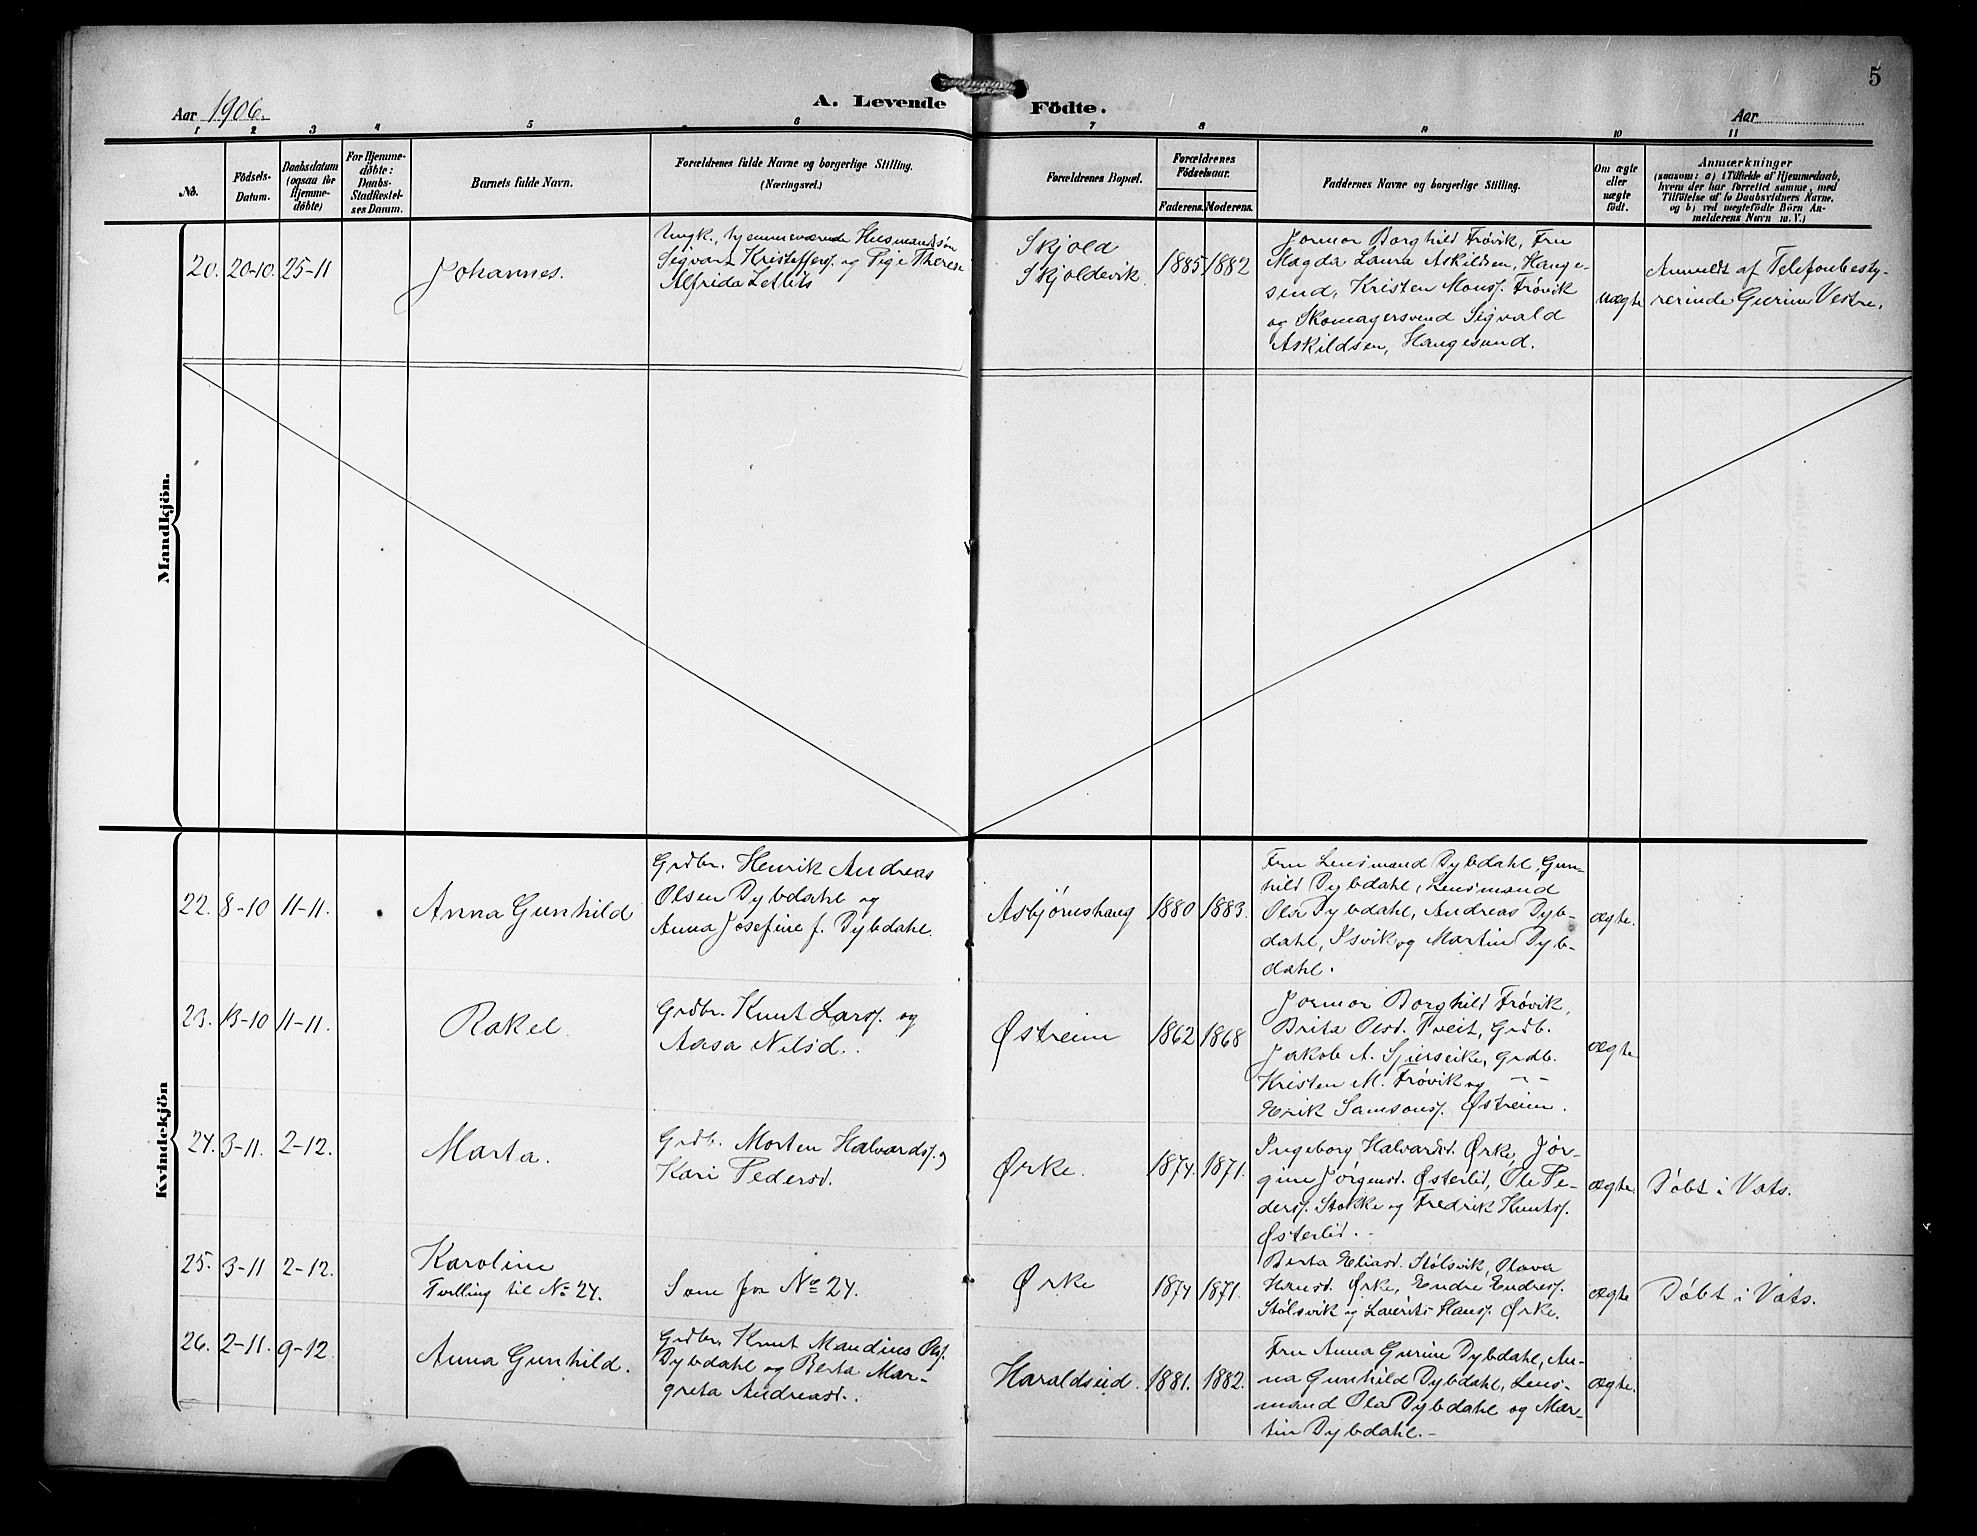 5
Aar 1906.
A. Levende Födte.
Aar
1 2 3 4 5 6 7 8 9 10 11
No.
Födsels-
Datum.
Daabsdatum
(ogsaa for
Hjemme-
döbte)
For Hjemme-
döbte:
Daabs-
Stadfæstel-
ses Datum.
Barnets fulde Navn.
Forældrenes fulde Navne og borgerlige Stilling.
(Næringsvei.)
Forældrenes Bopæl.
Forældrenes
Födselsaar.
Faderens. Moderens.
Faddernes Navne og borgerlige Stilling.
Om ægte
eller
uægte
födt.
Anmærkninger
(saasom: a) i Tilfælde af Hjemmedaab,
hvem der har forrettet samme, med
Tilföielse af to Daabsvidners Navne,
og b) ved uægtefödte Börn An-
melderens Navn m. V.)
Mandkjön.
20. 20-10. 25-11
Johannes.
Ungk., hjemmeværende Husmandssøn
Sigvart Kristoffers. og Pige Therese
Alfrida
Skjold
Skjoldevik.
1885 1882
Jormor Borghild Frøvik, Fru
Magda Laura Askildsen, Hauge-
sund, Kristen Monss. Frøvik
og Skomagersvend Sigvald
Askildsen, Haugesund.
uægte
Anmeldt af Telefonbesty-
rerinde Gurine Vestre.
Kvindekjön
22. 8-10 11-11.
Anna Gunhild
Grdbr. Henrik Andreas
Olsen Dybdahl og
Anna Josefine f. Dybdahl.
Asbjørnshaug
1880 1883.
Fru Lensmand Dybdahl, Gun-
hild Dybdahl, Lensmand
Ola Dybdahl, Andreas Dyb-
dahl, Isvik og Martin Dyb-
dahl.
ægte.
23. 13-10 11-11.
Rakel.
Grdbr. Knut Larss. og
Aasa Nilsd.
Østreim
1862 1868
Jormor Borghild Frøvik,
Brita Olsd. Tveit, Grdb.
Jakob A. Skjerseike, Grdb.
Kristen M. Frøvik og - -
Erik Samsons. Østreim.
ægte
24. 3-11. 2-12.
Marta.
Grdb. Morten Halvards. og
Kari Pedersd.
Ørke.
1874. 1871.
Ingeborg Halvardsd. Ørke, Jør-
gine Jørgensd. Østerlid, Ole Pe-
ders. Stokke og Fredrik Knuts.
Østerlid.
ægte.
Døbt i Vats.
25. 3-11 2-12.
Karoline
Tvilling til No 24.
Som for No 24.
Ørke
1874 1871.
Berta Eliasd. Stølsvik, Olava
Hansd. Ørke, Endre Endres.
Stølsvik og Laurits Hans. Ørke.
ægte
Døbt i Vats.
26. 2-11. 9-12.
Anna Gunhild.
Grdbr. Knut Mandius Ols.
Dybdahl og Berta Mar-
greta Andreasd.
Haraldseid.
1881. 1882.
Fru Anna Gurine Dybdahl, An-
na Gunhild Dybdahl, Lens-
mand Ola Dybdahl og Mar-
tin Dybdahl.-
ægte.